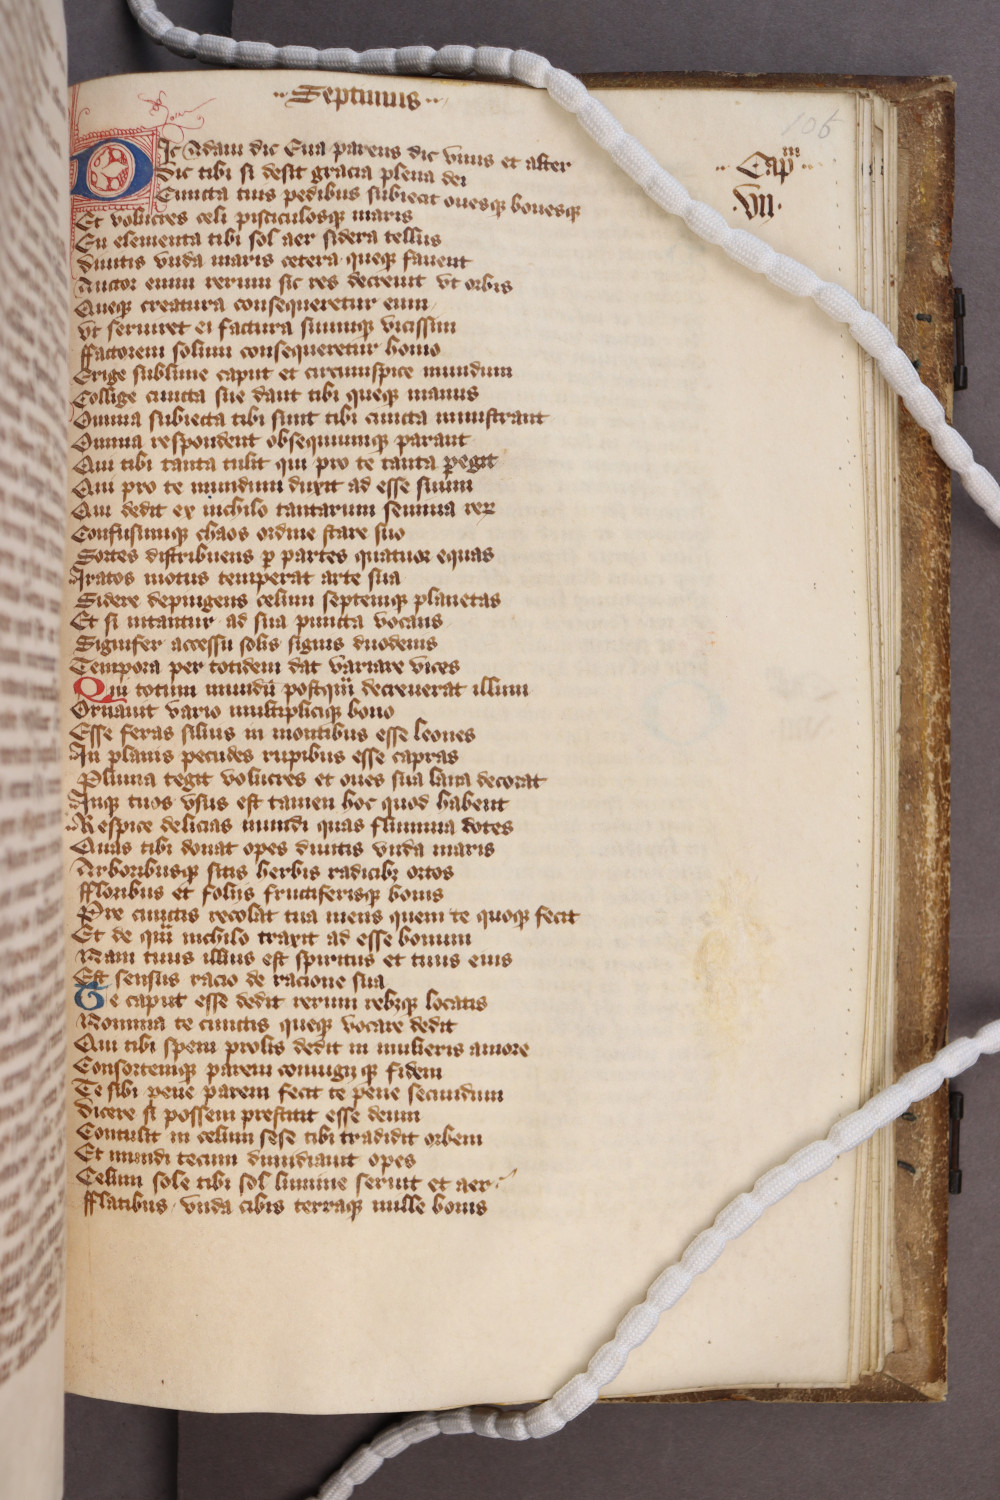 Septimus
106
Capm
VII
Dic Adam dic Eua parens dic vnus et alter
Dic tibi si desit gracia plena dei
Cuncta tuis pedibus subiecit ouesque bouesque
Et volucres celi pisciculosque maris
En elementa tibi sol aer sidera tellus
Diuitis vnda maris cetera queque fauent
Auctor enim rerum sic res decreuit vt orbis
Queque creatura consequeretur eum
vt seruiret ei factura suumque vicissim
ffactorem solum consequeretur homo
Erige sublime caput et circumspice mundum
Collige cuncta sue dant tibi queque manus
Omnia subiecta tibi sunt tibi cuncta ministrant
Omnia respondent obsequiumque parant
Qui tibi tanta tulit qui pro te tanta peregit
Qui pro te mundum duxit ad esse suum
Qui dedit ex nichilo tantarum semina rerum
Confusumque chaos ordine stare suo
Sortes distribuens per partes quatuor equas
Iratos motus temperat arte sua
Sidere depingens celum septemque planetas
Et si nitantur ad sua puncta vocans
Signifer accessu solis signis duodenis
Tempora per totidem dat variare vices
Qui totum mundum postquam decreuerat illum
Ornauit vario multiplicique bono
Esse feras siluis in montibus esse leones
In planis pecudes rupibus esse capras
Pluma tegit volucres et oues sua lana decorat
Inque tuos vsus est tamen hoc quod habent
Respice delicias mundi quas flumina dotes
Quas tibi donat opes diuitis vnda maris
Arboribusque sitis herbis radicibus ortos
ffloribus et foliis fructiferisque bonis
Pre cunctis recolat tua mens quem te quoque fecit
Et de quam nichilo traxit ad esse bonum
Nam tuus illius est spiritus et tuus eius
Est sensus racio de racione sua
Te caput esse dedit rerum rebusque locatis
Nomina te cunctis queque vocare dedit
Qui tibi spem prolis dedit in mulieris amore
Consortemque parem coniugiique fidem
Te sibi pene parem fecit te pene secundum
Dicere si possem prestitit esse deum
Contulit in celum sese tibi tradidit orbem
Et mundi tecum dimidiauit opes
Celum sole tibi sol lumine seruit et aer
fflatibus vnda cibis terraque mille bonis